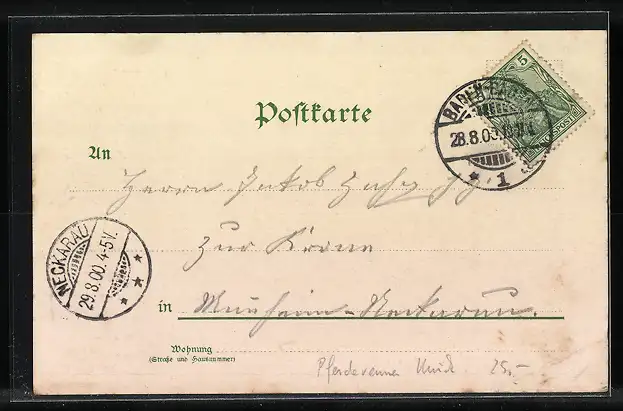 5
REICHSPOST
BADEN-BADEN
28.8.00
* 1
Postkarte
An
Herrn Jakob
zur Krone
NECKARAU
29.8.00.4-5V.
* * *
in Mannheim-Neckarau.
Wohnung
(Straße und Hausnummer)
Pferderennen 25,-